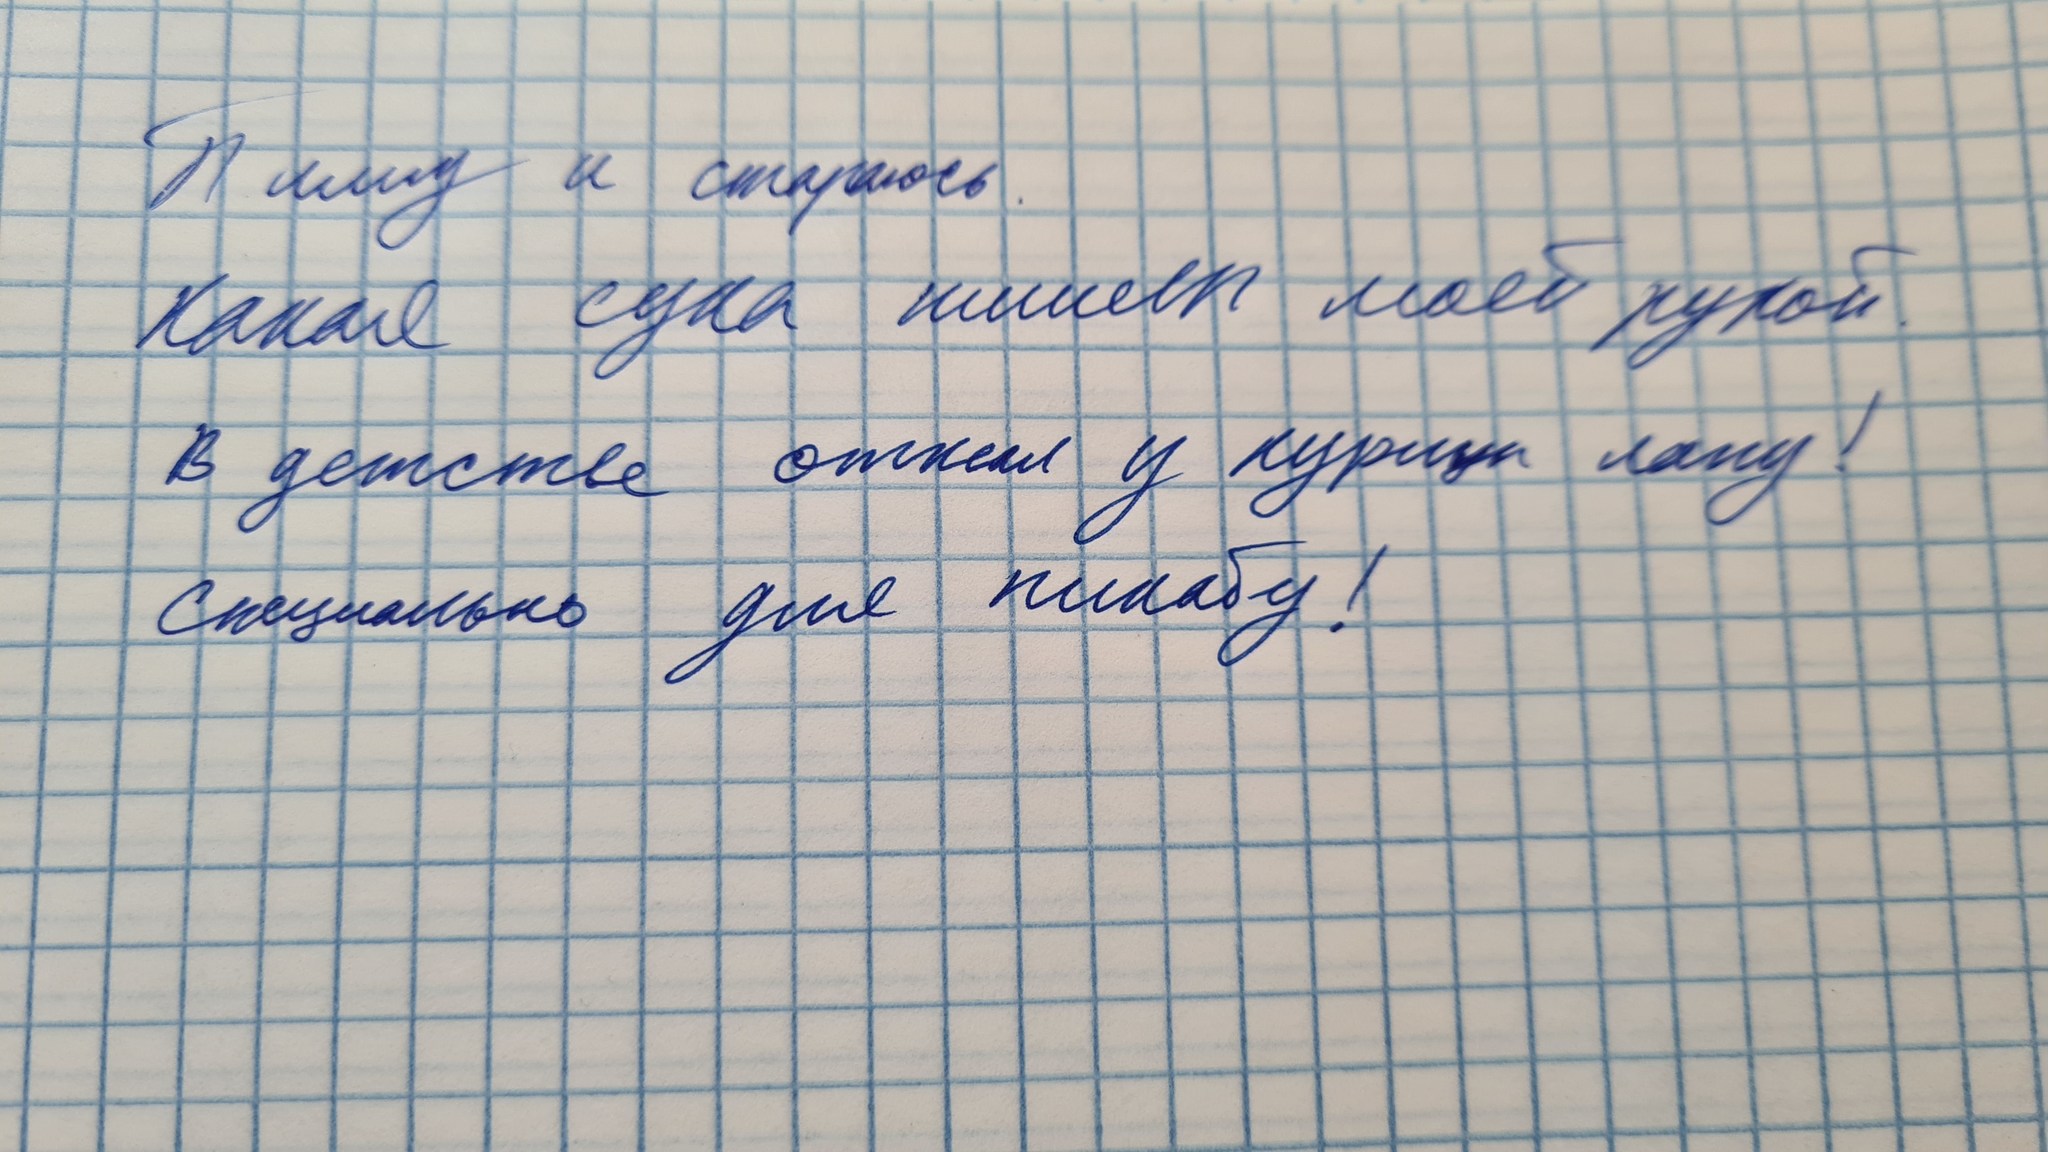 Пишу и стараюсь.
Какая сука пишет моей рукой.
В детстве отжал у курицы лапу!
Специально для пикабу!